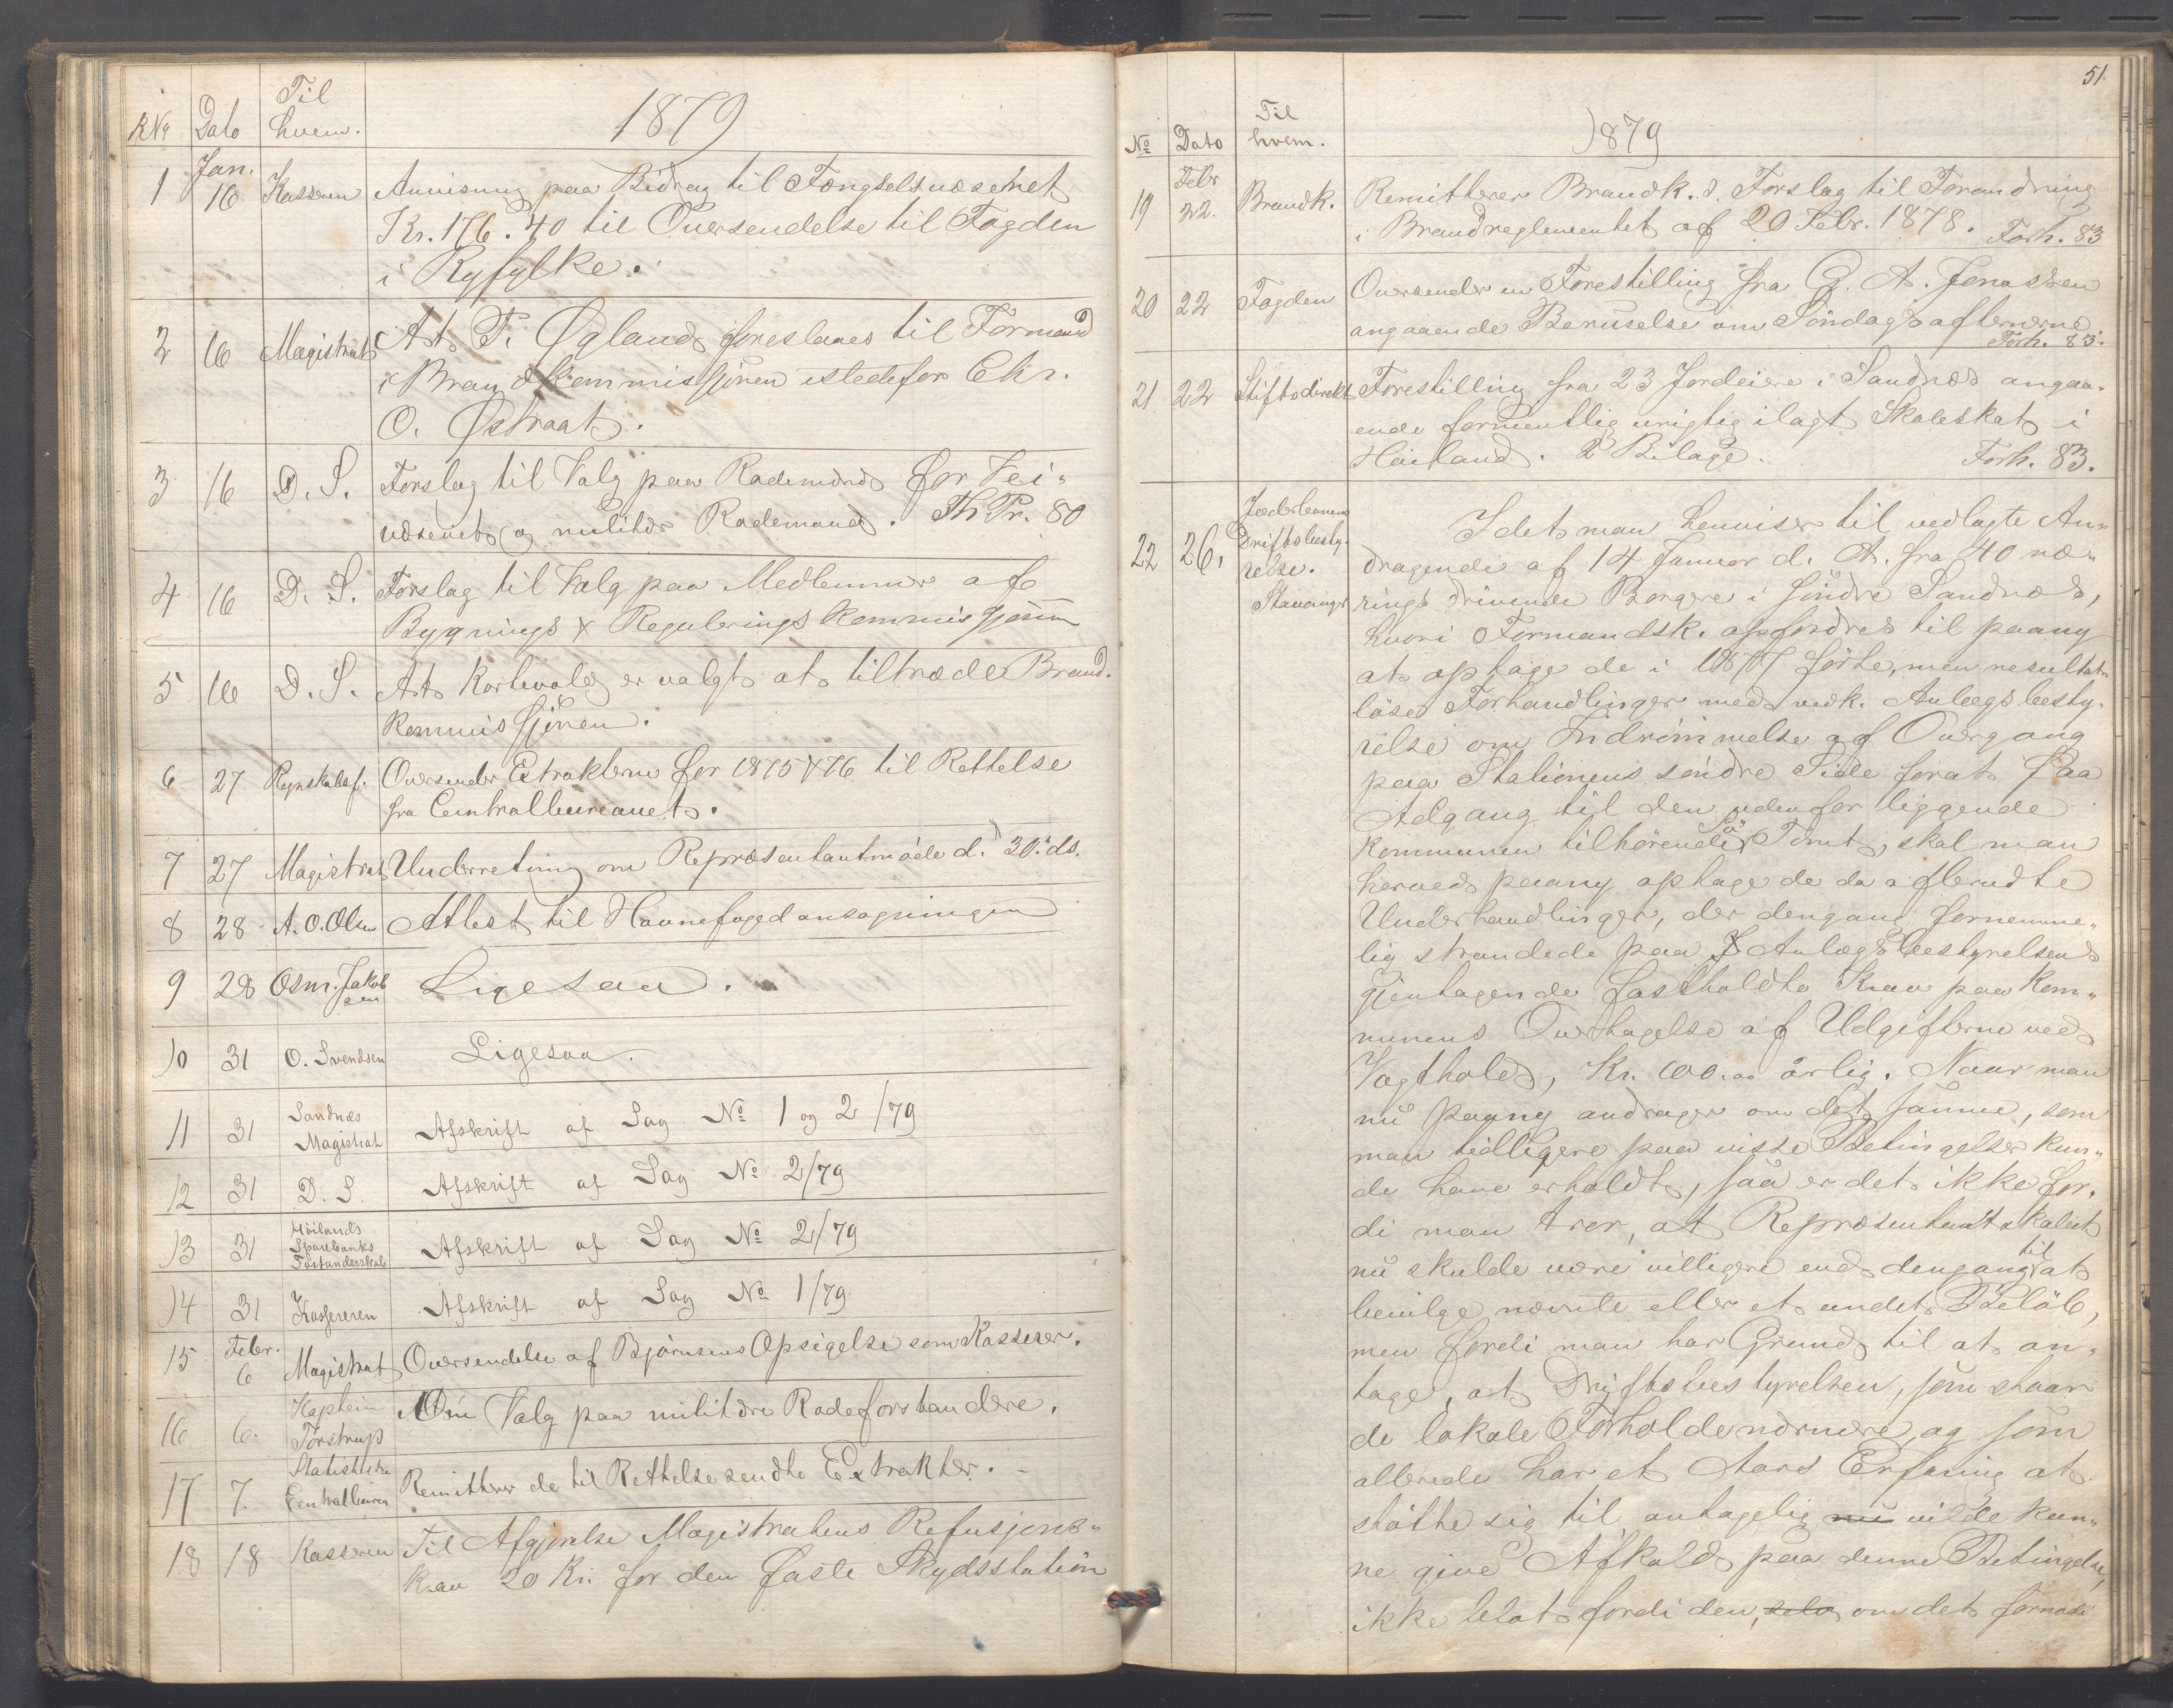 Til
RNo Dato hvem. 1879
Jan.
1 16 Kasseren Anvisning paa Bidrag til Fængselsvæsenet
Kr. 176.40 til Oversendelse til Fogden
i Ryfylke.
2 16 Magistrat At T. Øgland foreslaaes til Formand
i Brandkommissjonen istedefor Chr.
O. Østraat.
3 16 D. S. Forslag til Valg paa Rodemænd for Vei-
væsenet og militær Rodemand. Fh. Pr. 80
4 16 D. S. Forslag til Valg paa Medlemmer af
Bygnings & Regulerings kommissjonen
5 16 D. S. At Kortevold er valgt at tiltræde Brand-
kommissjonen.
6 27 Regnskabsf. Oversender Extrakterne for 1875 & 76 til Rettelse
fra Centralbureauet.
7 27 Magistrat Underretning om Repræsentantmøde d. 30. ds.
8 28 A. O. Olsen Attest til Havnefogedansøgningen
9 28 Osm. Jakobsen Ligesaa.
10 31 O. Svendsen Ligesaa.
11 31 Sandnæs Magistrat Afskrift af Sag No 1 og 2/79
12 31 D. S. Afskrift af Sag No 2/79
13 31 Høilands Sparebanks Forstanderskab Afskrift af Sag No 2/79
14 31 Kassereren Afskrift af Sag No 1/79
Febr.
15 6 Magistrat Oversendelse af Bjørnsens Opsigelse som Kasserer.
16 6. Kaptein Torstrup Om Valg paa militære Rodeforstandere.
17 7. Statistiske Centralbureau Remitterer de til Rettelse sendte Extrakter.
18 18 Kasseren Til Afgjørelse Magistratens Refusjons-
krav 20 Kr. for den faste Skydsstation
51.
Til
No Dato hvem. 1879
Febr
19 22. Brandk. Remitterer Brandk.s Forslag til Forandring
i Brandreglementet af 20 Febr. 1878. Forh. 83
20 22 Fogden Oversender en Forestilling fra G. A. Jonassen
angaaende Beruselse om Søndagsaftenerne
Forh. 83.
21 22 Stiftsdirekt. Forestilling fra 23 Jordeiere i Sandnæs angaa-
ende formentlig urigtig ilagt Skoleskat i
Høiland. 2 Bilage. Forh. 83.
22 26. Jæderbanens Driftsbesty-
relse.
Stavanger
Idet man henviser til vedlagte An-
dragende af 14 Januar d. A. fra 40 næ-
ringsdrivende Borgere i søndre Sandnæs,
hvori Formandsk. opfordres til paany
at optage de i 1877 førte, men resultat-
løse Forhandlinger med vedk. Anlægsbesty-
relse om Indrømmelse af Overgang
paa Stationens søndre Side forat faa
Adgang til den udenfor liggende
kommunen tilhørende Sø Tomt, skal man
herved paany optage de da afbrudte
Underhandlinger, der dengang fornemme-
lig strandede paa Anlægsbestyrelsens
gjentagende fastholdte Krav paa Kom-
munens Overtagelse af Udgifterne ved
Vagthold, Kr. 600.00 årlig. Naar man
nu paany andrager om det samme, som
man tidligere paa visse Betingelser kun-
de have erholdt, saa er det ikke for-
di man tror, at Repræsentantskabet
nu skulde være villigere end dengang til at
bevilge nævnte eller et andet Beløb,
men fordi man har Grund til at an-
tage, at Driftsbestyrelsen, som staar
de lokale Forholde nærmere, og som
allerede har et Aars Erfaring at
støtte sig til antagelig nu vilde kun-
ne give Afkald paa denne Betingelse,
ikke blot fordi den, selv om det fornødi